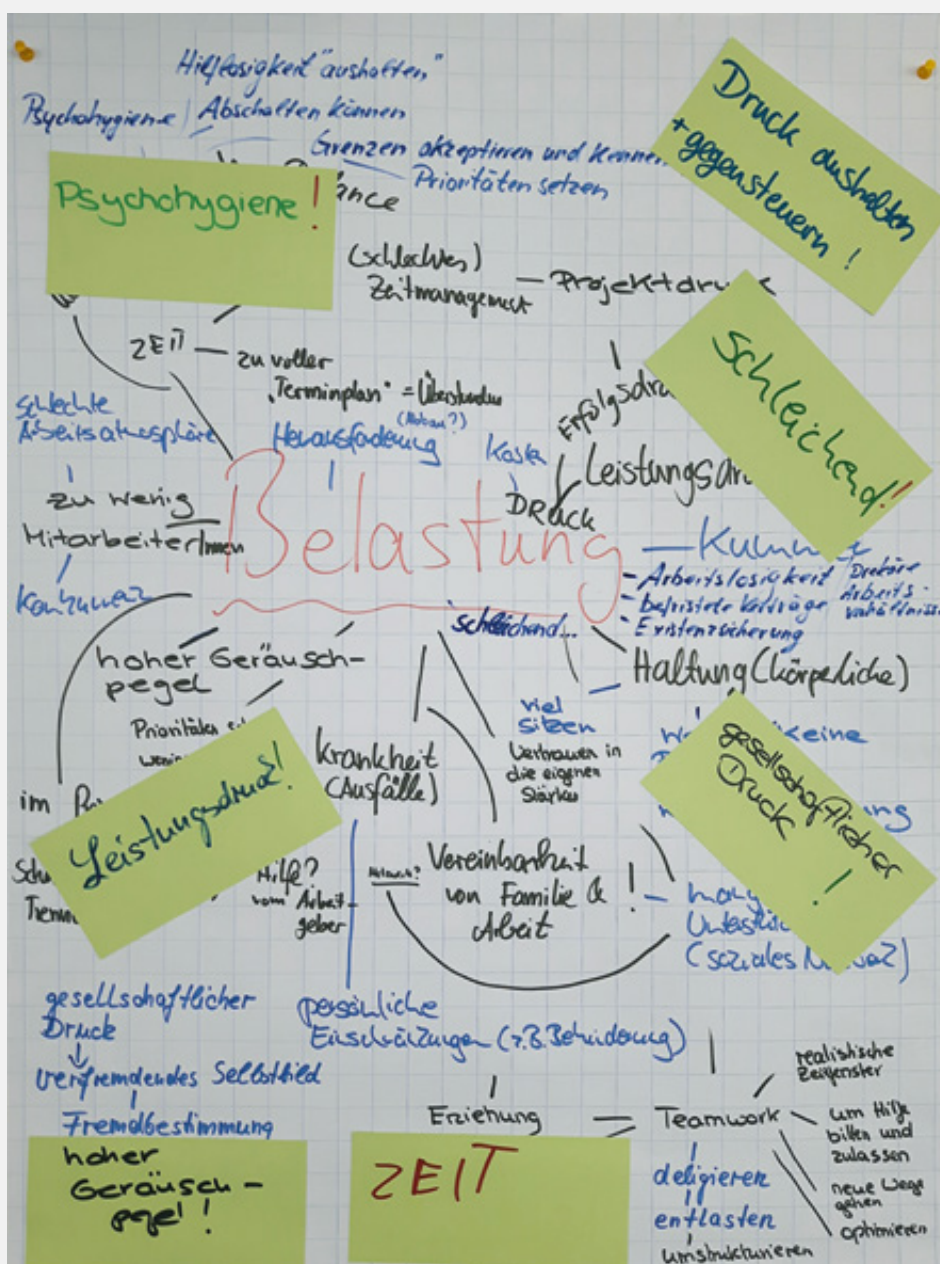 Hilflosigkeit "aushalten"
Psychohygiene / Abschalten können
Grenzen akzeptieren und kennen
Prioritäten setzen
Psychohygiene!
Druck aushalten
+ gegensteuern!
(schlechtes)
Zeitmanagement
ZEIT
zu voller
"Terminplan" = Überstunden
Schleichend!
schlechte
Arbeitsatmosphäre
Herausforderung
DRUCK
zu wenig
MitarbeiterInnen
Belastung
- Arbeitslosigkeit
- befristete Verträge
- Existenzsicherung
Arbeits-
schleichend...
hoher Geräusch-
pegel
Haltung (körperliche)
viel
sitzen
Vertrauen in
die eigenen
Stärken
Krankheit
(Ausfälle)
keine
gesellschaftlicher
Druck!
im
Leistungsdruck!
Hilfe?
vom Arbeit-
geber
Vereinbarkeit
von Familie &
Arbeit
!
(soziales
gesellschaftlicher
Druck
persönliche
Einschränkungen (z.B. Behinderung)
verfremdendes Selbstbild
Fremdbestimmung
Erziehung
Teamwork
realistische
Zeitfenster
um Hilfe
bitten und
zulassen
neue Wege
gehen
optimieren
deligieren
entlasten
umstrukturieren
hoher
Geräusch-
pegel!
ZEIT